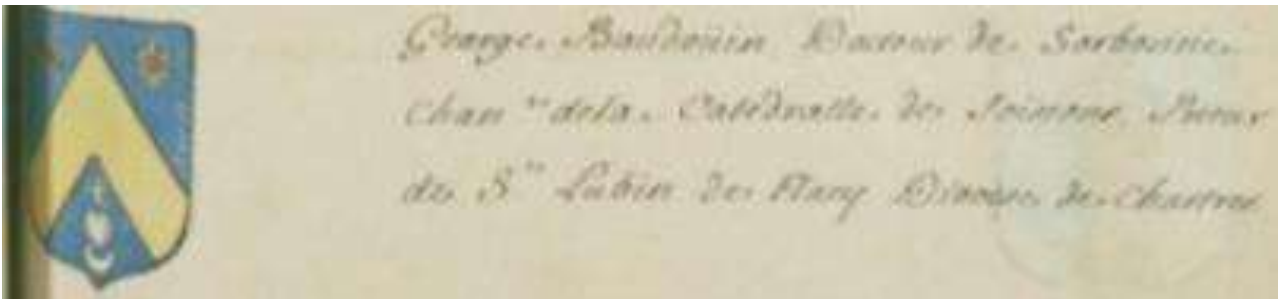 George Baudouin Docteur de Sorbonne
Chan ne dela Catédralle de Prieur
de St Lubin de Diocese de Chartres